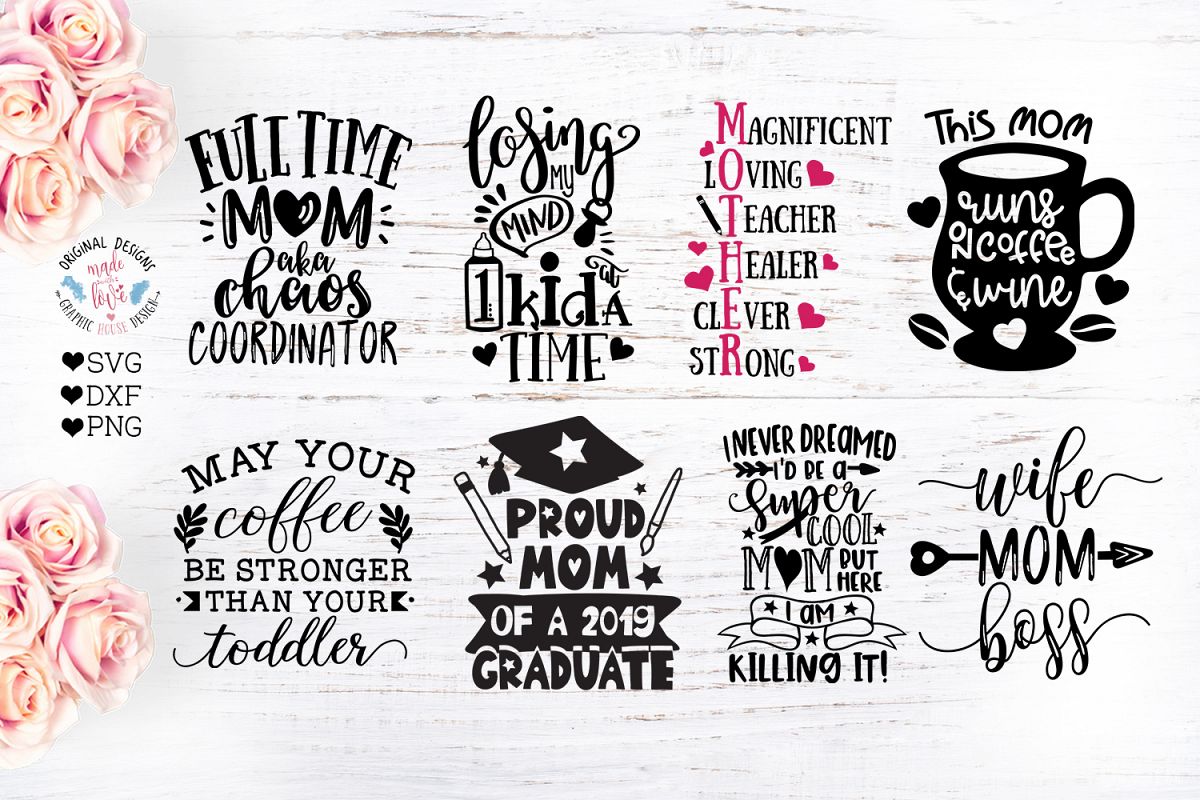 ORIGINAL DESIGNS
made
with
love
GRAPHIC HOUSE DESIGN
SVG
DXF
PNG
FULL TIME
MOM
aka
chaos
COORDINATOR
losing
MY
MIND
1 kid at A
TIME
MAGNIFICENT
LOVING
TEACHER
HEALER
CLEVER
STRONG
THIS MOM
runs
ON COFFEE
& wine
MAY YOUR
coffee
BE STRONGER
THAN YOUR
toddler
PROUD
MOM
OF A 2019
GRADUATE
I NEVER DREAMED
I'D BE A
Super
COOL
MOM BUT
HERE
I AM
KILLING IT!
wife
MOM
boss